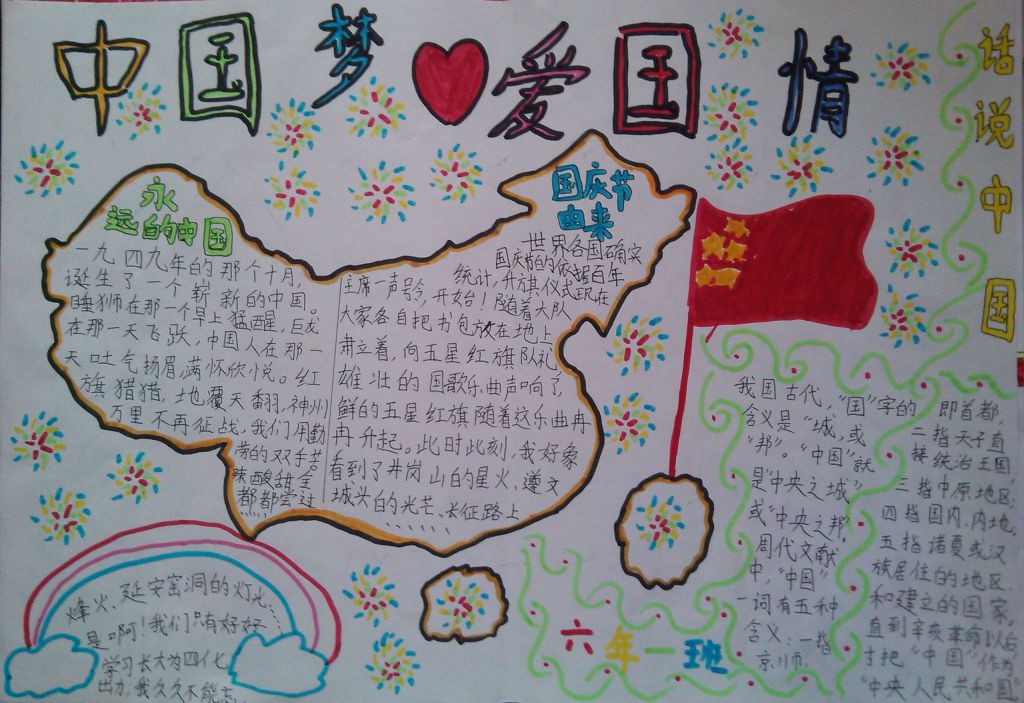 中国梦爱国情
永
远的中国
一九四九年的那个十月,
诞生了一个崭新的中国。
睡狮在那一个早上猛醒,巨龙
在那一天飞跃,中国人在那一
天吐气扬眉,满怀欣悦。红
旗猎猎,地覆天翻,神州
万里不再征战,我们用勤
劳的双手苦
辣酸甜全
都都尝过
国庆节
由来
世界各国确实
国庆节的依据百年
统计,升旗仪式现在
主席一声号令,开始!随着大队
大家各自把书包放在地上
肃立着,向五星红旗队礼,
雄壮的国歌乐曲声响了,
鲜的五星红旗随着这乐曲冉
冉升起。此时此刻,我好象
看到了井岗山的星火、遵义
城头的光芒、长征路上
......
烽火、延安窑洞的灯光...
是啊!我们只有好好
学习长大为四化
出力,我久久不能忘
六年一班
话说中国
我国古代,“国”字的
含义是“城,或
“邦”。“中国”就
是“中央之城”
或“中央之邦”
周代文献
中,“中国”
一词有五种
含义:一指
京师,
即首都,
二指天子直
接统治王国,
三指中原地区,
四指国内、内地,
五指诸夏或汉
族居住的地区
和建立的国家。
直到辛亥革命以后
才把“中国”作为
“中央人民共和国”